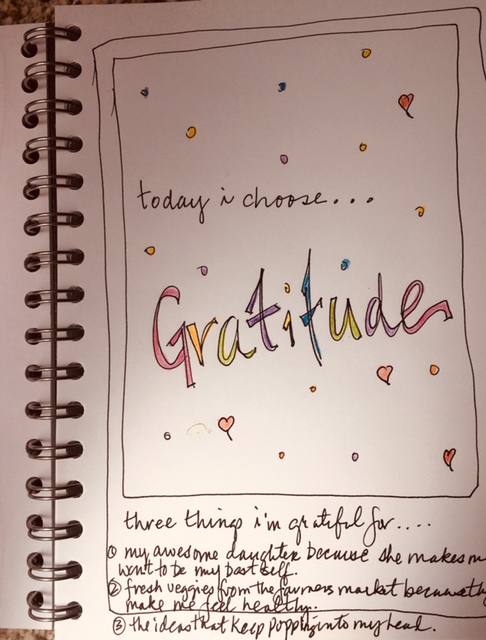 today i choose...
Gratitude
three things i'm grateful for....
① my awesome daughter because she makes m
want to be my best self.
② fresh veggies from the farmers market because th
make me feel healthy.
③ the ideas that keep popping into my head.